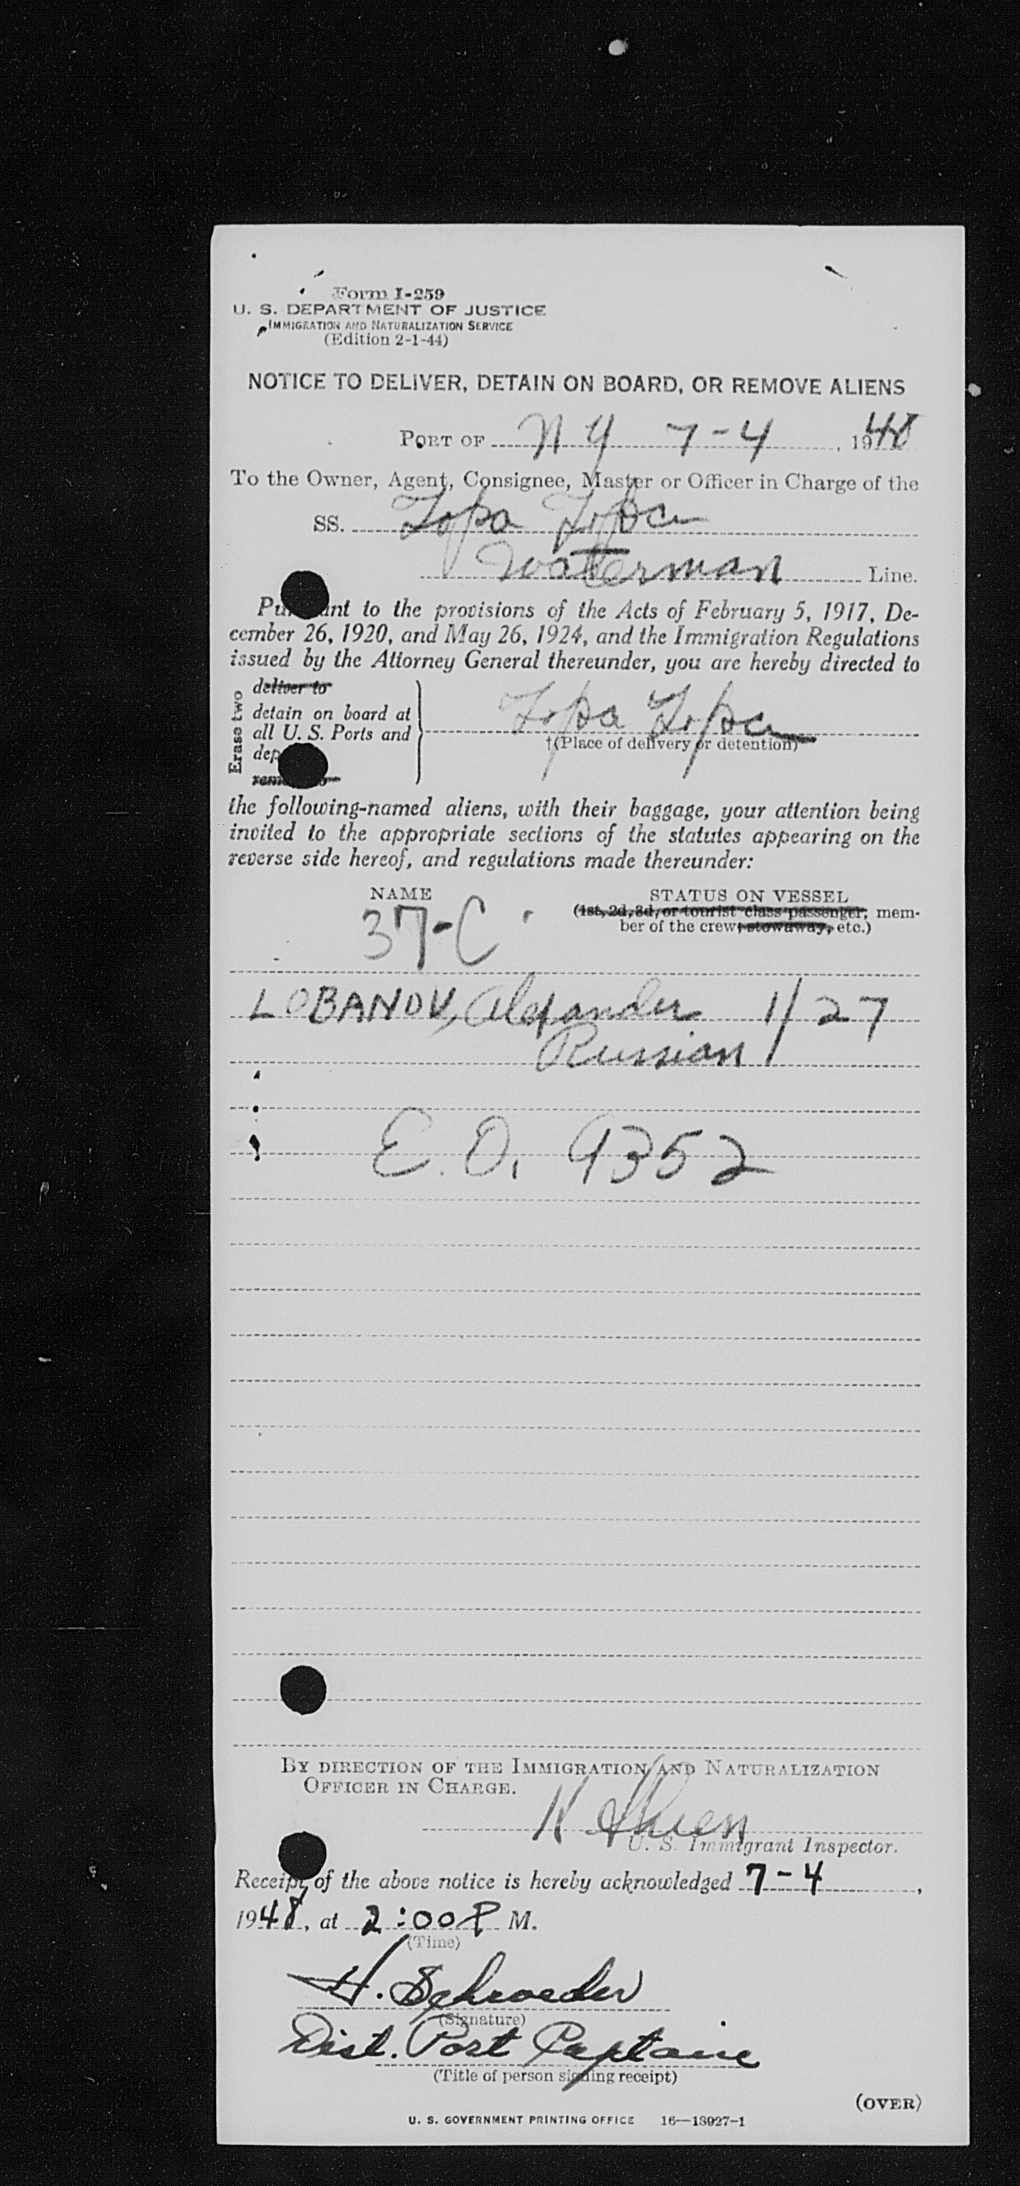 Form I-259
U. S. DEPARTMENT OF JUSTICE
IMMIGRATION AND NATURALIZATION SERVICE
(Edition 2-1-44)
NOTICE TO DELIVER, DETAIN ON BOARD, OR REMOVE ALIENS
PORT OF N Y 7-4, 1948
To the Owner, Agent, Consignee, Master or Officer in Charge of the
SS. Topa Topa
Waterman Line.
Pursuant to the provisions of the Acts of February 5, 1917, De-
cember 26, 1920, and May 26, 1924, and the Immigration Regulations
issued by the Attorney General thereunder, you are hereby directed to
Erase two
deliver to
detain on board at
all U. S. Ports and
dep
remove to
Topa Topa
†(Place of delivery or detention)
the following-named aliens, with their baggage, your attention being
invited to the appropriate sections of the statutes appearing on the
reverse side hereof, and regulations made thereunder:
NAME STATUS ON VESSEL
(1st, 2d, 3d, or tourist class passenger, mem-
ber of the crew, stowaway, etc.)
37-C
LOBANOV, Alexander 1/27
Russian
E. O. 9352
BY DIRECTION OF THE IMMIGRATION AND NATURALIZATION
OFFICER IN CHARGE.
U. S. Immigrant Inspector.
Receipt of the above notice is hereby acknowledged 7-4,
1948, at 2:00 P M.
(Time)
H. Schroeder
(Signature)
Dist. Port Captain
(Title of person signing receipt)
(OVER)
U. S. GOVERNMENT PRINTING OFFICE 16—13927-1